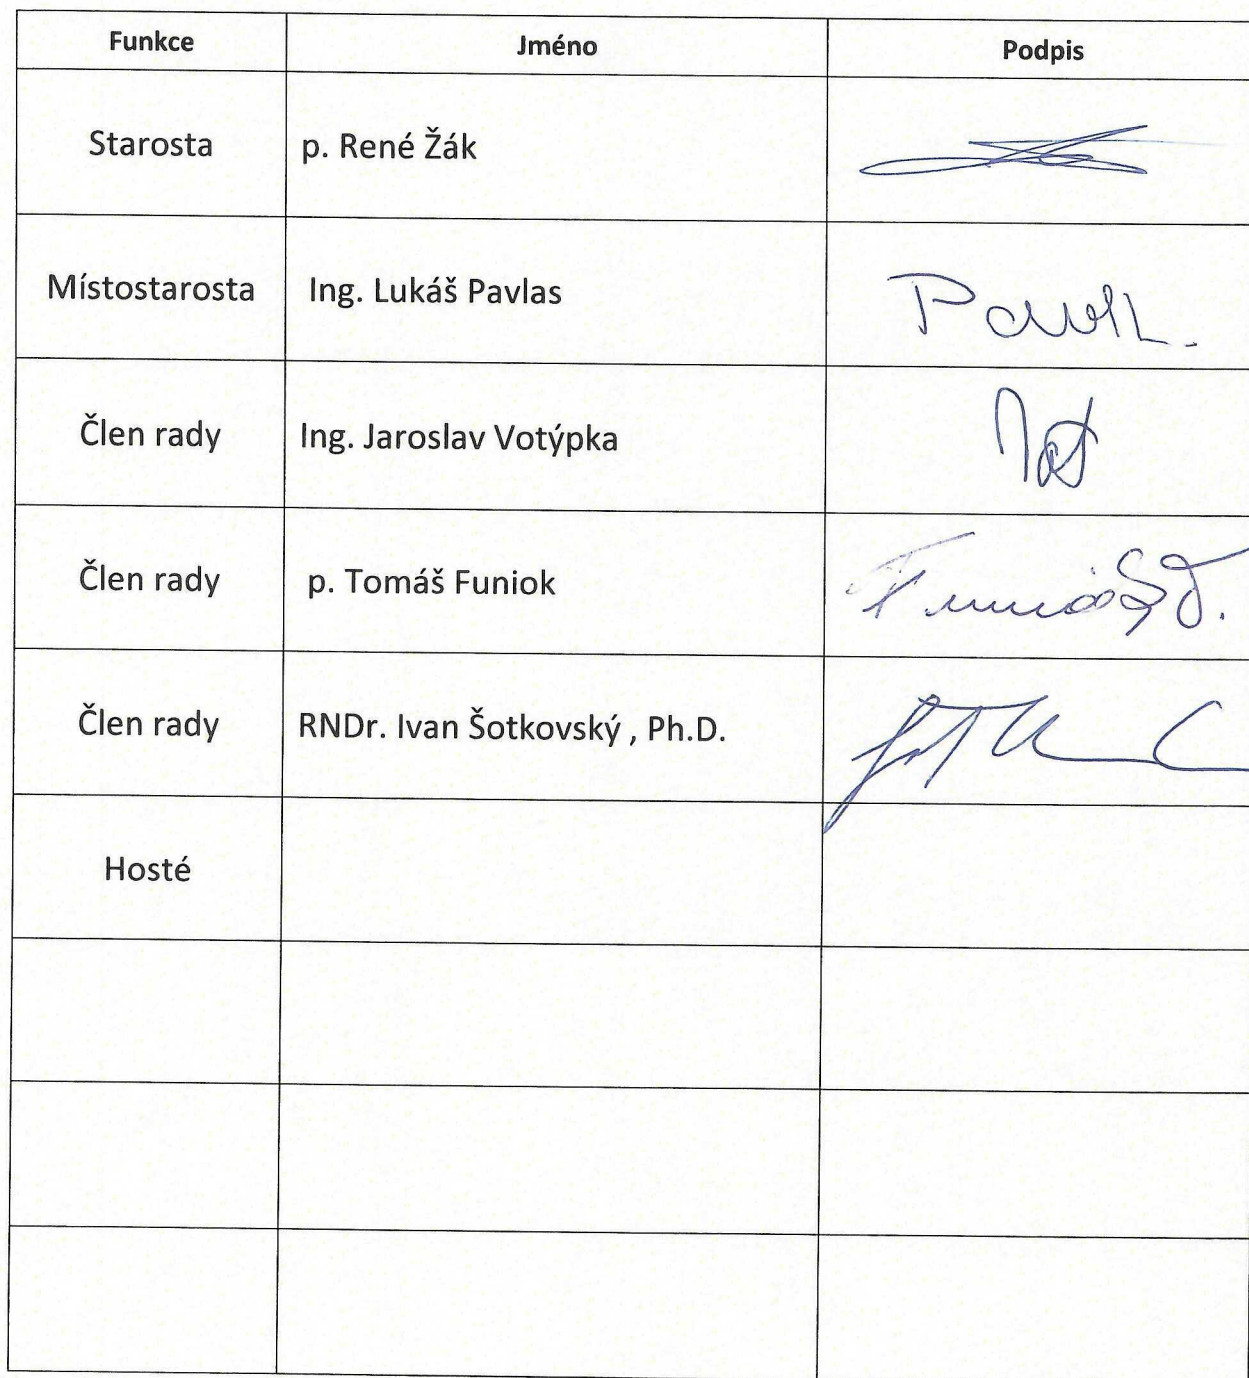 Funkce Jméno Podpis
Starosta p. René Žák
Místostarosta Ing. Lukáš Pavlas
Člen rady Ing. Jaroslav Votýpka
Člen rady p. Tomáš Funiok
Člen rady RNDr. Ivan Šotkovský , Ph.D.
Hosté